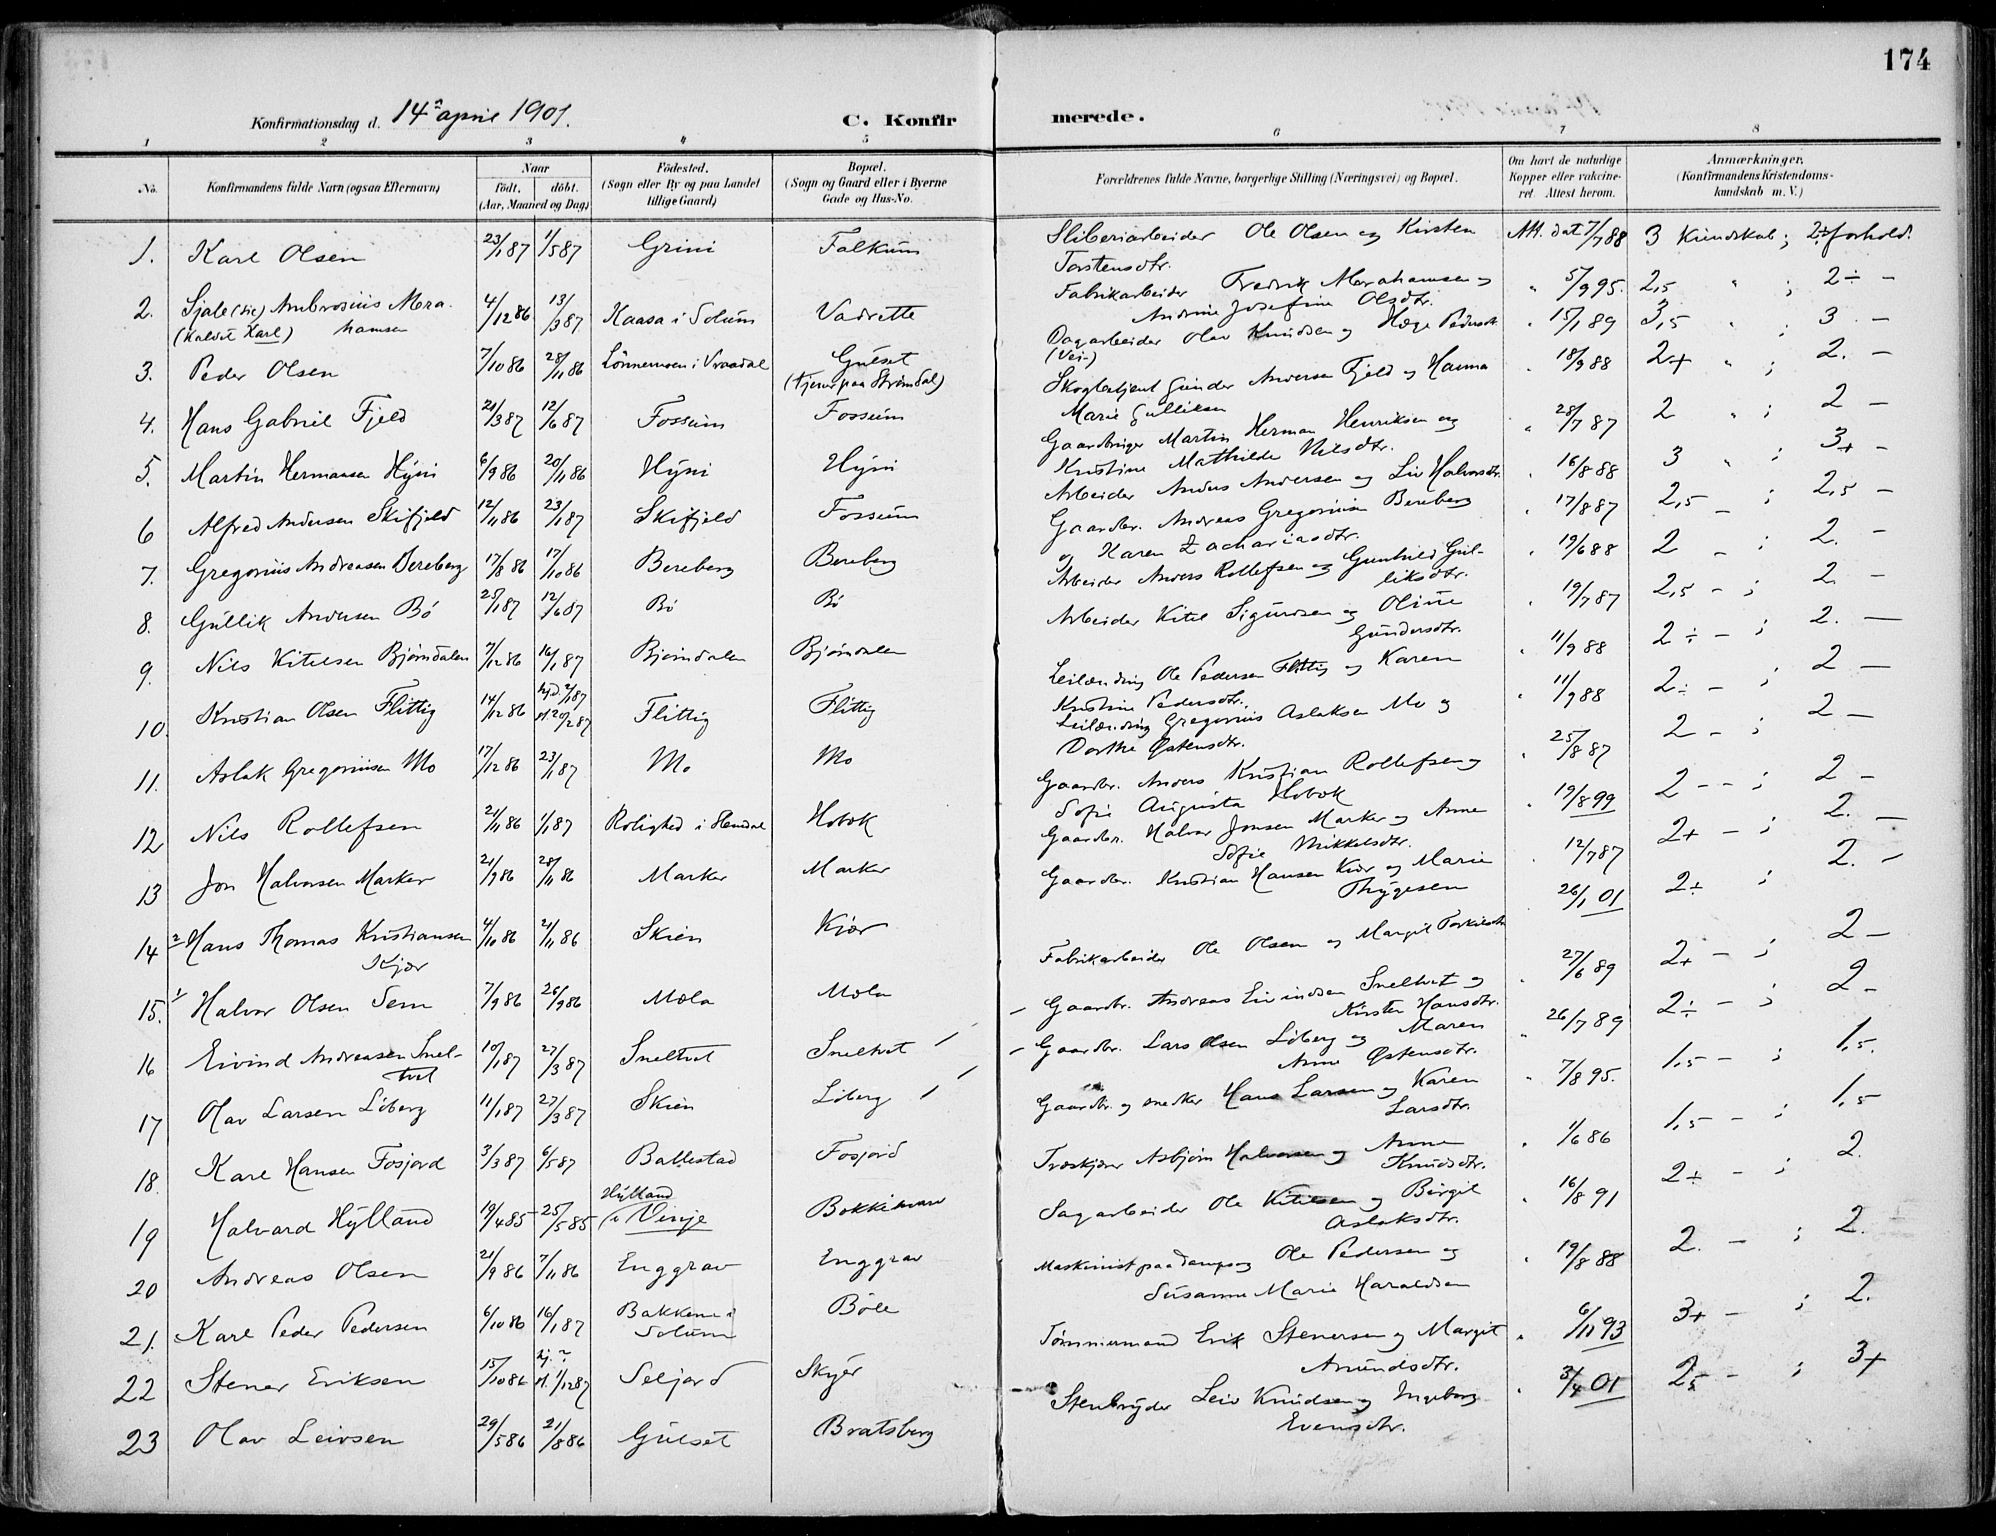 174
Konfirmationsdag d. 14de april 1901.
C. Konfirmerede.
1 2 3 4 5 6 7 8
No.
Konfirmandens fulde Navn (ogsaa Efternavn)
Naar
födt. döbt.
(Aar, Maaned og Dag)
Födested.
(Sogn eller By og paa Landet
tillige Gaard)
Bopæl.
(Sogn og Gaard eller i Byerne
Gade og Hus-No.
Forældrenes fulde Navne, borgerlige Stilling (Næringsvei) og Bopæl.
Om havt de naturlige
Kopper eller vakcine-
ret. Attest herom.
Anmærkninger.
(Konfirmandens Kristendoms-
kundskab m. V.)
1. Karl Olsen 23/1 87 1/5 87 Grini Falkum Sliberiarbeider Ole Olsen og Kirsten Att. dat 7/7 88 3 Kundskab; 2÷ forhold.
Torstensdtr.
2. Sjale (sic) Ambrosius Abra- 4/12 86 13/3 87 Kaasa i Solum Vadrette Fabrikarbeider Fredrik Abrahamsen og " 5/9 95. 2,5 " ; 2÷ -
(kaldet Karl) hamsen Andrine Josefine Olsdtr.
3. Peder Olsen 7/10 86 28/11 86 Lönnemoen i Vraadal Gulset Dagarbeider Olav Knudsen og Hæge Pedersdtr. " 15/1 89 3,5 " ; 3 -
(tjener paa Strømdal) (Vei-)
4. Hans Gabriel Fjeld 21/3 87 12/6 87 Fossum Fossum Skogbetjent Gunder Andersen Fjeld og Hanna " 18/9 88 2+ " ; 2. -
Marie Gulliksen
5. Martin Hermansen Hyni 6/9 86 20/11 86 Hyni Hyni Gaardbruger Martin Herman Henriksen og " 28/7 87 2 " ; 2 -
Kristine Mathilde Nilsdtr.
6 Alfred Andersen Skifjeld 12/11 86 23/1 87 Skifjeld Fossum Arbeider Anders Andersen og Liv Halvorsdtr. " 16/8 88 3 " ; 3+ -
7. Gregorius Andreasen Bereberg 17/8 86 17/10 86 Bereberg Bereberg Gaardbr. Andreas Gregoriusen Bereberg " 17/8 87 2,5 - ; 2,5 -
og Karen Zachariasdtr.
8. Gullik Andersen Bö 25/1 87 12/6 87 Bö Bö Arbeider Anders Rollefsen og Gunhild Gul- " 19/6 88 2 - ; 2. -
liksdtr.
9. Nils Kitelsen Bjørndalen 7/12 86 16/1 87 Bjørndalen Bjørndalen Arbeider Kitel Sigurdsen og Oline " 19/7 87 2,5 - ; 2. -
Gundersdtr.
10. Kristian Olsen Flittig 14/12 86 hj.d. 2/1 87 Flittig Flittig Leilænding Ole Pedersen Flittig og Karen " 11/9 88 2÷ - ; 2. -
st. 20/2 87 Kristine Pedersdtr.
11. Aslak Gregoriusen Mo 17/12 86 23/1 87 Mo Mo Leilænding Gregorius Aslaksen Mo og " 11/9 88 2÷ - ; 2 -
Dorthe Østensdtr.
12 Nils Rollefsen 21/11 86 1/1 87 Rolighed i Hemdal Hobæk Gaardbr. Anders Kristian Rollefsen og " 25/8 87 2 - ; 2 -
Sofie Augusta Hobæk
13 Jon Halvorsen Marker 21/9 86 28/11 86 Marker Marker Gaardbr. Halvor Jonsen Marker og Anne " 19/8 99 2 - - ; 2 -
Sofie Mikkelsdtr. 12/7 87 2+ - ; 2. -
14 2 Hans Thomas Kristiansen 4/10 86 21/11 86 Skien Kjær Gaardbr. Kristian Hansen Kjær og Marie 26/1 01 2÷ ; 2. -
Kjær Thygesen
15. 1 Halvor Olsen Sem 7/9 86 26/9 86 Mæla Mæla Fabrikarbeider Ole Olsen og Margit Torkilsdtr. 27/6 89 2+ - ; 2 -
16 Eivind Andreasen Snel- 10/1 87 27/3 87 Sneltvet Sneltvet Gaardbr. Andreas Eivindsen Sneltvet og 26/7 89 2÷ - ; 2 -
tvet Kirsten Hansdtr.
17 Olav Larsen Liberg 11/1 87 27/3 87 Skien Liberg Gaardbr. Lars Olsen Liberg og Maren " 7/8 95. 1,5 - ; 1,5.
Anne Østensdtr.
18. Karl Hansen Fosjord 3/3 87 6/5 87 Ballestad Fosjord Gaardbr. og snedker Hans Larsen og Karen " 1/6 86 1,5 - ; 1,5
Larsdtr.
19 Halvard Hylland 19/4 85 25/5 85 Hylland i Vinje Bakkhaven Træskjærer Asbjørn Halvorsen og Anne " 16/8 91 2÷ - ; 2.
Knudsdtr.
20 Andreas Olsen 21/9 86 7/11 86 Enggrav Enggrav Sagarbeider Ole Kittelsen og Birgit " 19/8 88 2. - ; 2.
Aslaksdtr.
21. Karl Peder Pedersen 6/10 86 16/1 87 Bakkene i Solum Böle Maskinist paa dampsag Ole Pedersen og " 6/11 93 3+ - ; 2.
Susanne Marie Haraldsen
22 Stener Eriksen 15/10 86 hj. ? Seljord Skyer Tømmermand Erik Stenersen og Margit " 3/4 01 2,5 - ; 3+
st. 1/12 87 Amundsdtr.
23 Olav Leivsen 29/5 86 21/8 86 Gulset Bratsberg Stenbryder Leiv Knudsen og Ingeborg
Evensdtr.